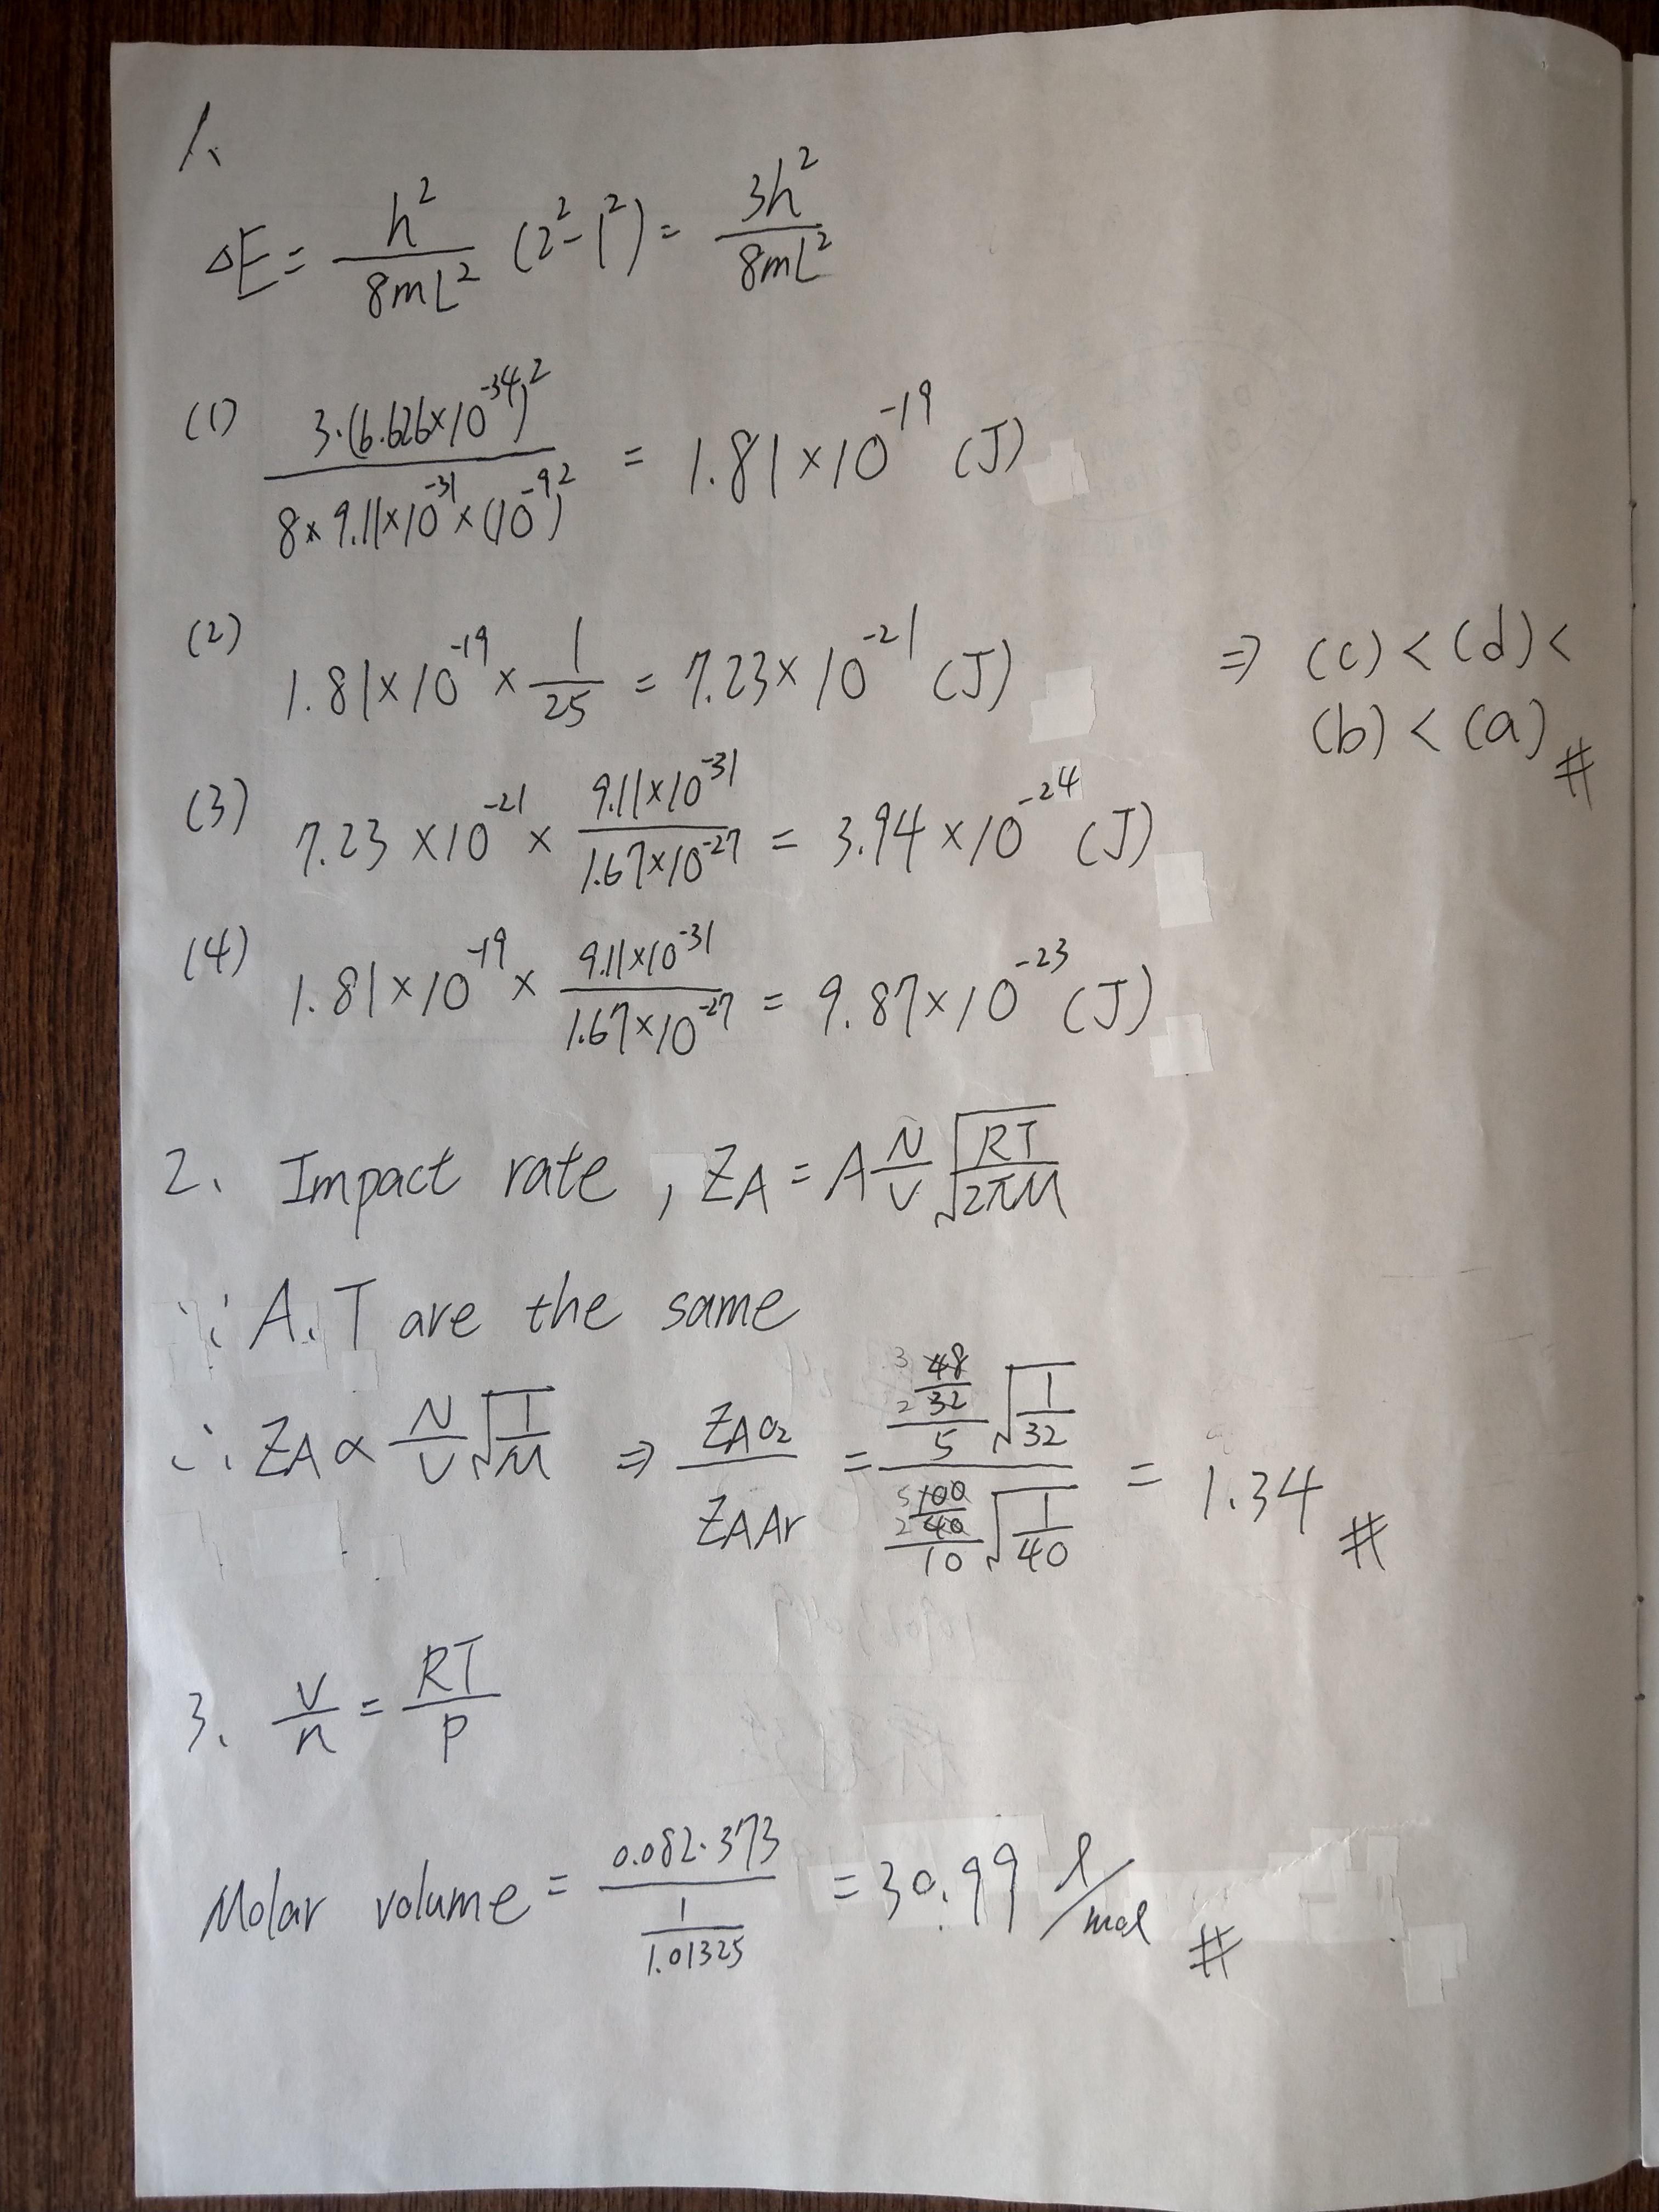 1、
ΔE = h²/8mL² (2²-1²) = 3h²/8mL²
(1) 3·(6.626×10⁻³⁴)²/8×9.11×10⁻³¹×(10⁻⁹)² = 1.81×10⁻¹⁹ (J)
(2) 1.81×10⁻¹⁹ × 1/25 = 7.23×10⁻²¹ (J)
⇒ (c) < (d) <
(b) < (a) #
(3) 7.23×10⁻²¹ × 9.11×10⁻³¹/1.67×10⁻²⁷ = 3.94×10⁻²⁴ (J)
(4) 1.81×10⁻¹⁹ × 9.11×10⁻³¹/1.67×10⁻²⁷ = 9.87×10⁻²³ (J)
2、 Impact rate , Z_A = A N/V √(RT/2πM)
∵ A.T are the same
∴ Z_A ∝ N/V √(1/M) ⇒ Z_A O₂/Z_A Ar = (3 48/2 32)/5 √(1/32) / (5 100/2 40)/10 √(1/40) = 1.34 #
3、 V/n = RT/P
Molar volume = 0.082·373/(1/1.01325) = 30.99 l/mol #